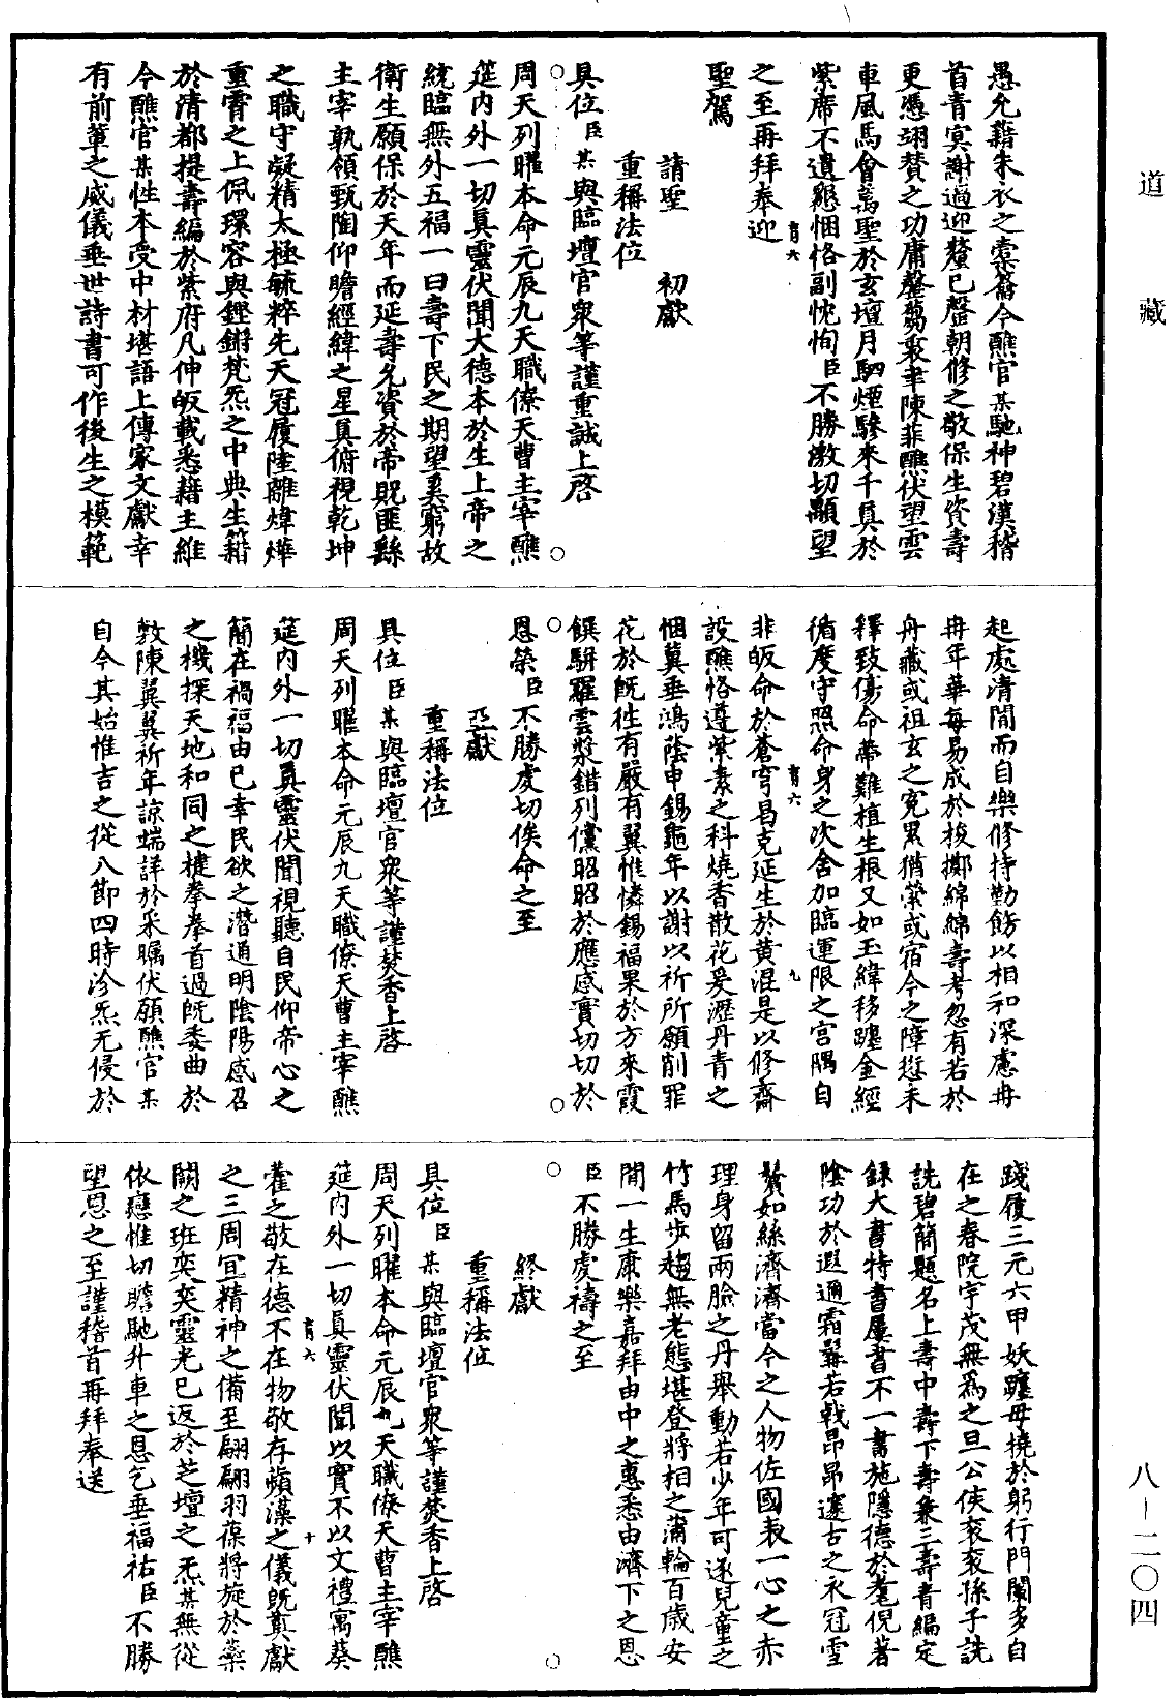 愚允藉朱衣之黨籥今醮官某馳神碧漢稽
首青冥謝過迎釐已罄朝修之敬保生資壽
更憑翊贊之功庸罄蒭聿陳菲醮伏望雲
車風馬會萬聖於玄壇月駟煙驂來千真於
紫席不遺懇悃恪副忱恂臣不勝激切顒望
之至再拜奉迎
聖駕
請聖 初獻
重稱法位
具位臣某與臨壇官衆等謹重誠上啓
周天列曜本命元辰九天職僚天曹主宰醮
筵内外一切真靈伏聞大德本於生上帝之
統臨無外五福一曰壽下民之期望奚窮故
衛生願保於天年而延壽允資於帝貺匪繇
主宰孰領甄陶仰瞻經緯之星真俯視乾坤
之職守凝精太極毓粹先天冠履陸離煒燁
重霄之上佩環容與鏗鏘梵炁之中典生籍
於清都提壽編於紫府凡伸皈載悉藉主維
今醮官某性本受中材堪語上傳家文獻幸
有前輩之威儀垂世詩書可作後生之模範
起處清閒而自樂修持勤飭以相和深慮冉
冉年華每易成於梭擲綿綿壽考忽有若於
舟藏或祖玄之冤累猶縈或宿今之障愆未
釋致傷命蒂難植生根又如玉緯移躔金經
循度守照命身之次舍加臨運限之宮隅自
非皈命於蒼穹曷克延生於黄混是以修齋
設醮恪遵紫素之科燒香散花爰瀝丹青之
悃冀垂鴻蔭申錫龜年以謝以祈所願削罪
花於既往有嚴有翼惟憐錫福果於方來霞
饌駢羅雲漿錯列儻昭昭於應感實切切於
恩榮臣不勝虔切俟命之至
亞獻
重稱法位
具位臣某與臨壇官衆等謹焚香上啓
周天列曜本命元辰九天職僚天曹主宰醮
筵内外一切真靈伏聞視聽自民仰帝心之
簡在禍福由已幸民欲之潛通明陰陽感召
之機探天地和同之楗拳拳首過既委曲於
敷陳翼翼祈年諒端詳於采矚伏願醮官某
自今其始惟吉之從八節四時沴炁无侵於
踐履三元六甲妖躔毋撓於躬行門闌多自
在之春院宇茂無爲之旦公侯衮衮孫子詵
詵碧簡題名上壽中壽下壽兼三壽青編定
録大書特書屢書不一書施隱德於耄倪著
陰功於遐邇霜髯若戟昂昂邃古之衣冠雪
鬢如絲濟濟當今之人物佐國表一心之赤
理身留兩臉之丹舉動若少年可逐兒童之
竹馬步趨無老態堪登將相之蒲輪百歲安
閒一生康樂嘉拜由中之惠悉由濟下之恩
臣不勝虔禱之至
終獻
重稱法位
具位臣某與臨壇官衆等謹焚香上啓
周天列曜本命元辰九天職僚天曹主宰醮
筵内外一切真靈伏聞以實不以文禮寓葵
藿之敬在德不在物敬存蘋藻之儀既奠獻
之三周宜精神之備至翩翩羽葆將旋於蘂
闕之班奕奕靈光已返於芝壇之炁某無從
依戀惟切瞻馳升車之恩乞垂福祐臣不勝
望恩之至謹稽首再拜奉送
道藏
八—二〇四